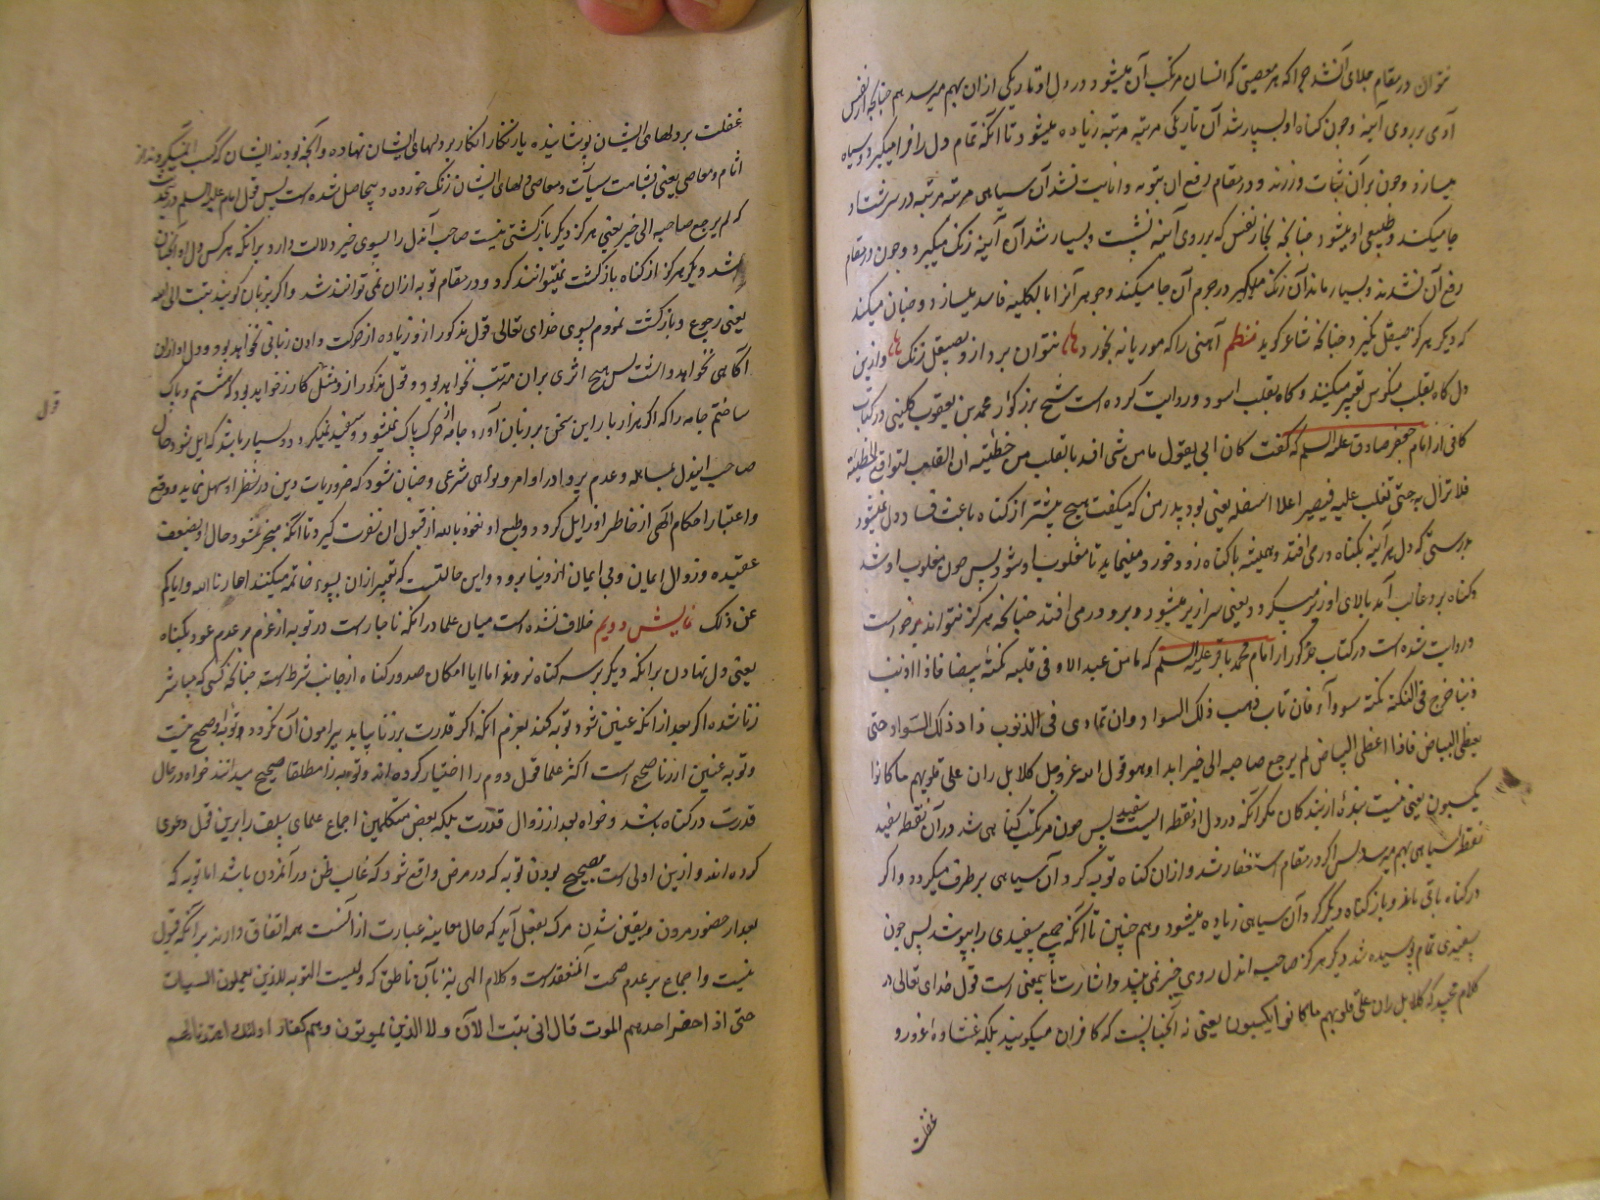 نتوان در مقام جلای آن شد چرا که هر معصیتی که انسان مرتکب آن میشود در دل او تاریکی از ان بهم میرسد هم چنانچه از نفس
آدمی بر روی آینه و چون کناه او بسیار شد آن تاریکی مرتبه مرتبه زیاده میشود تا آنکه تمام دل را فرا میکیرد و سیاه
میسازد و چون بر آن ثبات ورزند و در مقام رفع ان بتوبه و انابت نشد آن سیاهی مرتبه مرتبه در سرشت او
جا میکند و طبیعی او میشود چنانچه بخار نفس که بر روی آینه نشست و بسیار شد آن آینه زنک میکیرد و چون در مقام
رفع آن نشدند و بسیار ماند آن زنک در جرم آن جا میکند و جوهر آنرا بالکلیه فاسد میسازد و چنان میکند
که دیکر هرکز صیقل نکیرد چنانچه شاعر کوید نظم آهنی را که موریانه بخورد نتوان برد از و بصیقل زنک و ازین
دل کاه بقلب منکوس تعبیر میکنند و کاه بقلب اسود و روایت کرده است شیخ بزرکوار محمد بن یعقوب کلینی در کتاب
کافی از امام جعفر صادق علیه السلم که کفت کان ابی یقول ما من شی افسد بالقلب من خطیئه ان القلب لیواقع الخطیئه
فلا تزال به حتی تغلب علیه فیصیر اعلاه اسفله یعنی بود پدر من که میکفت هیچ بیشتر از کناه باعث فساد دل نمیشود
بدرستی که دل هرآینه بکناه در می افتد و همیشه با کناه زد و خورد مینماید تا مغلوب او شود پس چون مغلوب او شد
و کناه برو غالب آمد بالای او زیر میکردد یعنی سرازیر میشود و برو در می افتد چنانچه هرکز نتواند برخواست
و روایت شده است در کتاب مذکور از امام محمد باقر علیه السلم که ما من عبد الا و فی قلبه نکتة بیضا فاذا اذنب
ذنبا خرج فی النکتة نکتة سودآء فان تاب ذهب ذلک السواد و ان تمادی فی الذنوب زاد ذلک السواد حتی
یغطی البیاض فاذا اغطی البیاض لم یرجع صاحبه الی خیر ابدا و هو قول الله عز و جل کلا بل ران علی قلوبهم ما کانوا
یکسبون یعنی نیست بندهٔ از بندکان مکر آنکه در دل او نقطه ایست سفید پس چون مرتکب کناهی شد در آن نقطه سفید
نقطه سیاهی بهم میرسد پس اکر در مقام استغفار شد و از ان کناه توبه کرد آن سیاهی بر طرف میکردد و اکر
در کناه باقی ماند و باز کناه دیکر کرد آن سیاهی زیاده میشود و هم چنین تا آنکه جمیع سفیدی را بپوشد پس چون
سفیدی تمام پوسیده شد دیکر هرکز صاحب اندل روی خیر نمی بیند و اشارت باینمعنی است قول خدای تعالی در
کلام مجید که کلا بل ران علی قلوبهم ما کانوا یکسبون یعنی نه آنچنانست که کافران میکویند بلکه غشاوه غرور و
غفلت
غفلت بر دلهای ایشان پوشانیده یا زنکار انکار بر دلهای ایشان نهاده و آنچه بودند ایشان که کسب میکردند از
اثام و معاصی یعنی بشامت سیآت و معاصی دلهای ایشان زنک خورده و سیاه شده است پس قول امام علیه السلم در حدیث
که لم یرجع صاحبه الی خیر یعنی هرکز دیکر باز کشتی نیست صاحب آندل را بسوی خیر دلالت دارد بر انکه هر کس دل او آنچنان
شد دیکر هرکز از کناه باز کشت نمیتوانند کرد و در مقام توبه از ان نمی توانند شد و اکر بزبان کویند تبت الی الله
یعنی رجوع و باز کشت نمودم بسوی خدای تعالی قول مذکور از و زیاده از حرکت دادن زبانی نخواهد بود و دل او از ان
آکاهی نخواهد داشت پس هیچ اثری بران مرتب نخواهد بود و قول مذکور از و مثل کازر خواهد بود که شستم و پاک
ساختم جامه را که اکر هزار بار این سخن بر زبان آورد جامه از چرک پاک نمیشود و سفید نمیکردد و بسیار باشد که مایل شود حال
صاحب ایندل بمساهله و عدم پروا در اوامر و نواهی شرعی و چنان شود که ضروریات دین در نظر او سهل نماید و وقع
و اعتبار احکام الهی از خاطر او زایل کردد و طبع او نعوذ بالله از قبول ان نفرت کیرد تا انکه منجر شود حال او بضعف
عقیده و زوال ایمان و بی ایمان از دنیا برود و این حالتست که تعبیر از ان بسوء خاتمه میکنند اجارنا الله و ایاکم
عن ذلک نمایش دویم خلاف نشده است میان علما در انکه ناچار است در توبه از عزم بر عدم عود بکناه
یعنی دل نهادن بر انکه دیکر بر سر کناه نرود اما ایا امکان صدور کناه از جانب شرط است چنانچه کسی که مباشر
زنا شده اکر بعد از انکه عنین شود توبه کند بعزم انکه اکر قدرت بر زنا بیابد پیرامون آن نکردد توبه او صحیح نیست
و توبه عنین از زنا صحیح است اکثر علما قول دوم را اختیار کرده اند و توبه را مطلقا صحیح میدانند خواه در حال
قدرت در کناه باشد و خواه بعد از زوال قدرت بلکه بعض متکلمین اجماع علمای سلف را برین قول دعوی
کرده اند و ازین اولی است بصحیح بودن توبه که در مرض واقع شود که غالب ظن در آن مردن باشد اما توبه که
بعد از حضور مردن و یقین شدن مرک بفعل آید که حال معاینه عبارت از آنست همه اتفاق دارند بر انکه قبول
نیست و اجماع بر عدم صحت آن منعقد است و کلام الهی نیز بآن ناطق که و لیست التوبه للذین یعملون السیئات
حتی اذا حضر احدهم الموت قال انی تبت الآن و لا الذین یموتون و هم کفار اولئک اعتدنا لهم
قول